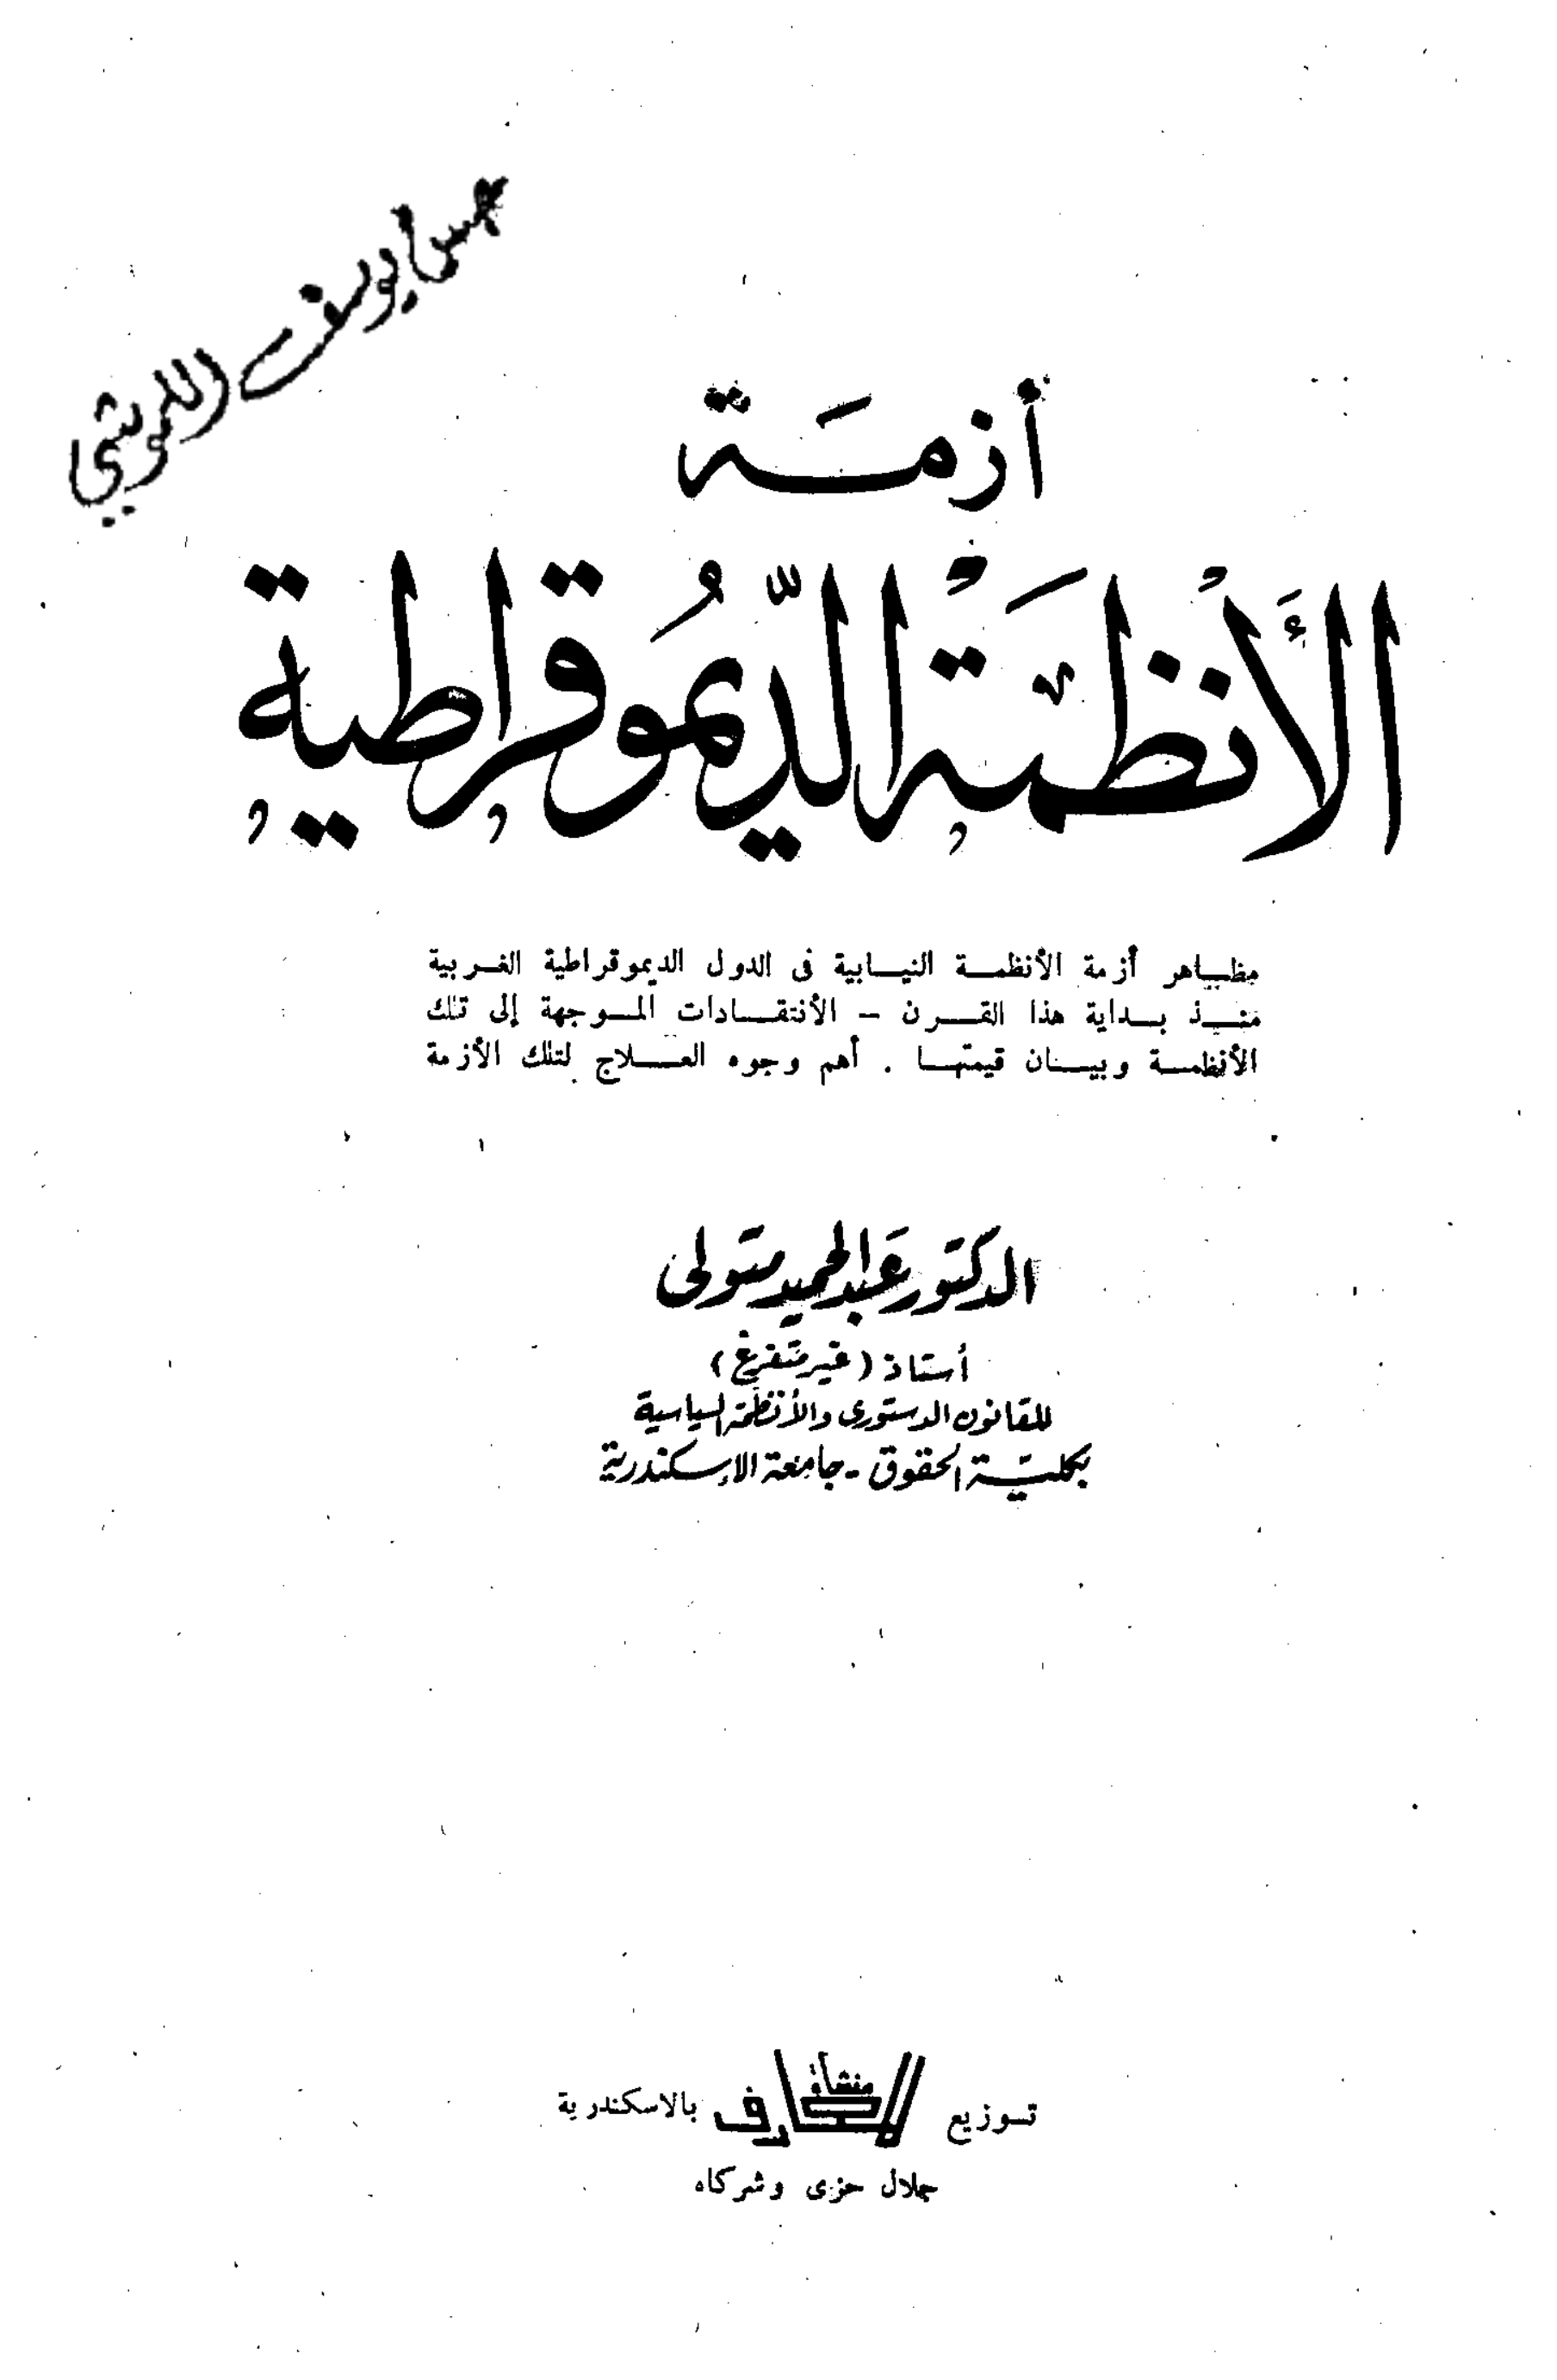 حسن يوسف
أزمة
الأنظمة الديموقراطية
مظاهر أزمة الأنظمة النيابية فى الدول الديموقراطية الغربية
منذ بداية هذا القرن – الأنتقادات الموجهة إلى تلك
الأنظمة وبيان قيمتها . أهم وجوه العلاج لتلك الأزمة
الدكتور عبد الحميد متولى
أستاذ (غير متفرغ)
للقانون الدستورى والأنظمة السياسية
بكلية الحقوق - جامعة الإسكندرية
توزيع منشأة المعارف بالاسكندرية
جلال حزى وشركاه